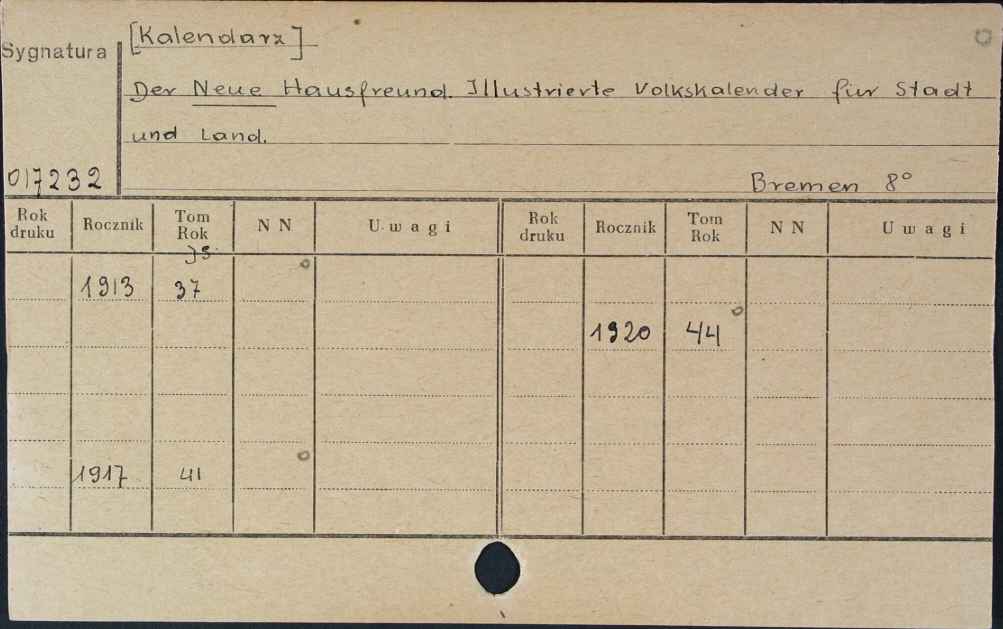 [Kalendarz]
Sygnatura
Der Neue Hausfreund. Illustrierte Volkskalender für Stadt
und Land.
017232
Bremen 8°
Rok druku Rocznik Tom Rok NN Uwagi Rok druku Rocznik Tom Rok NN Uwagi
Jg.
1913 37
1920 44
1917 41